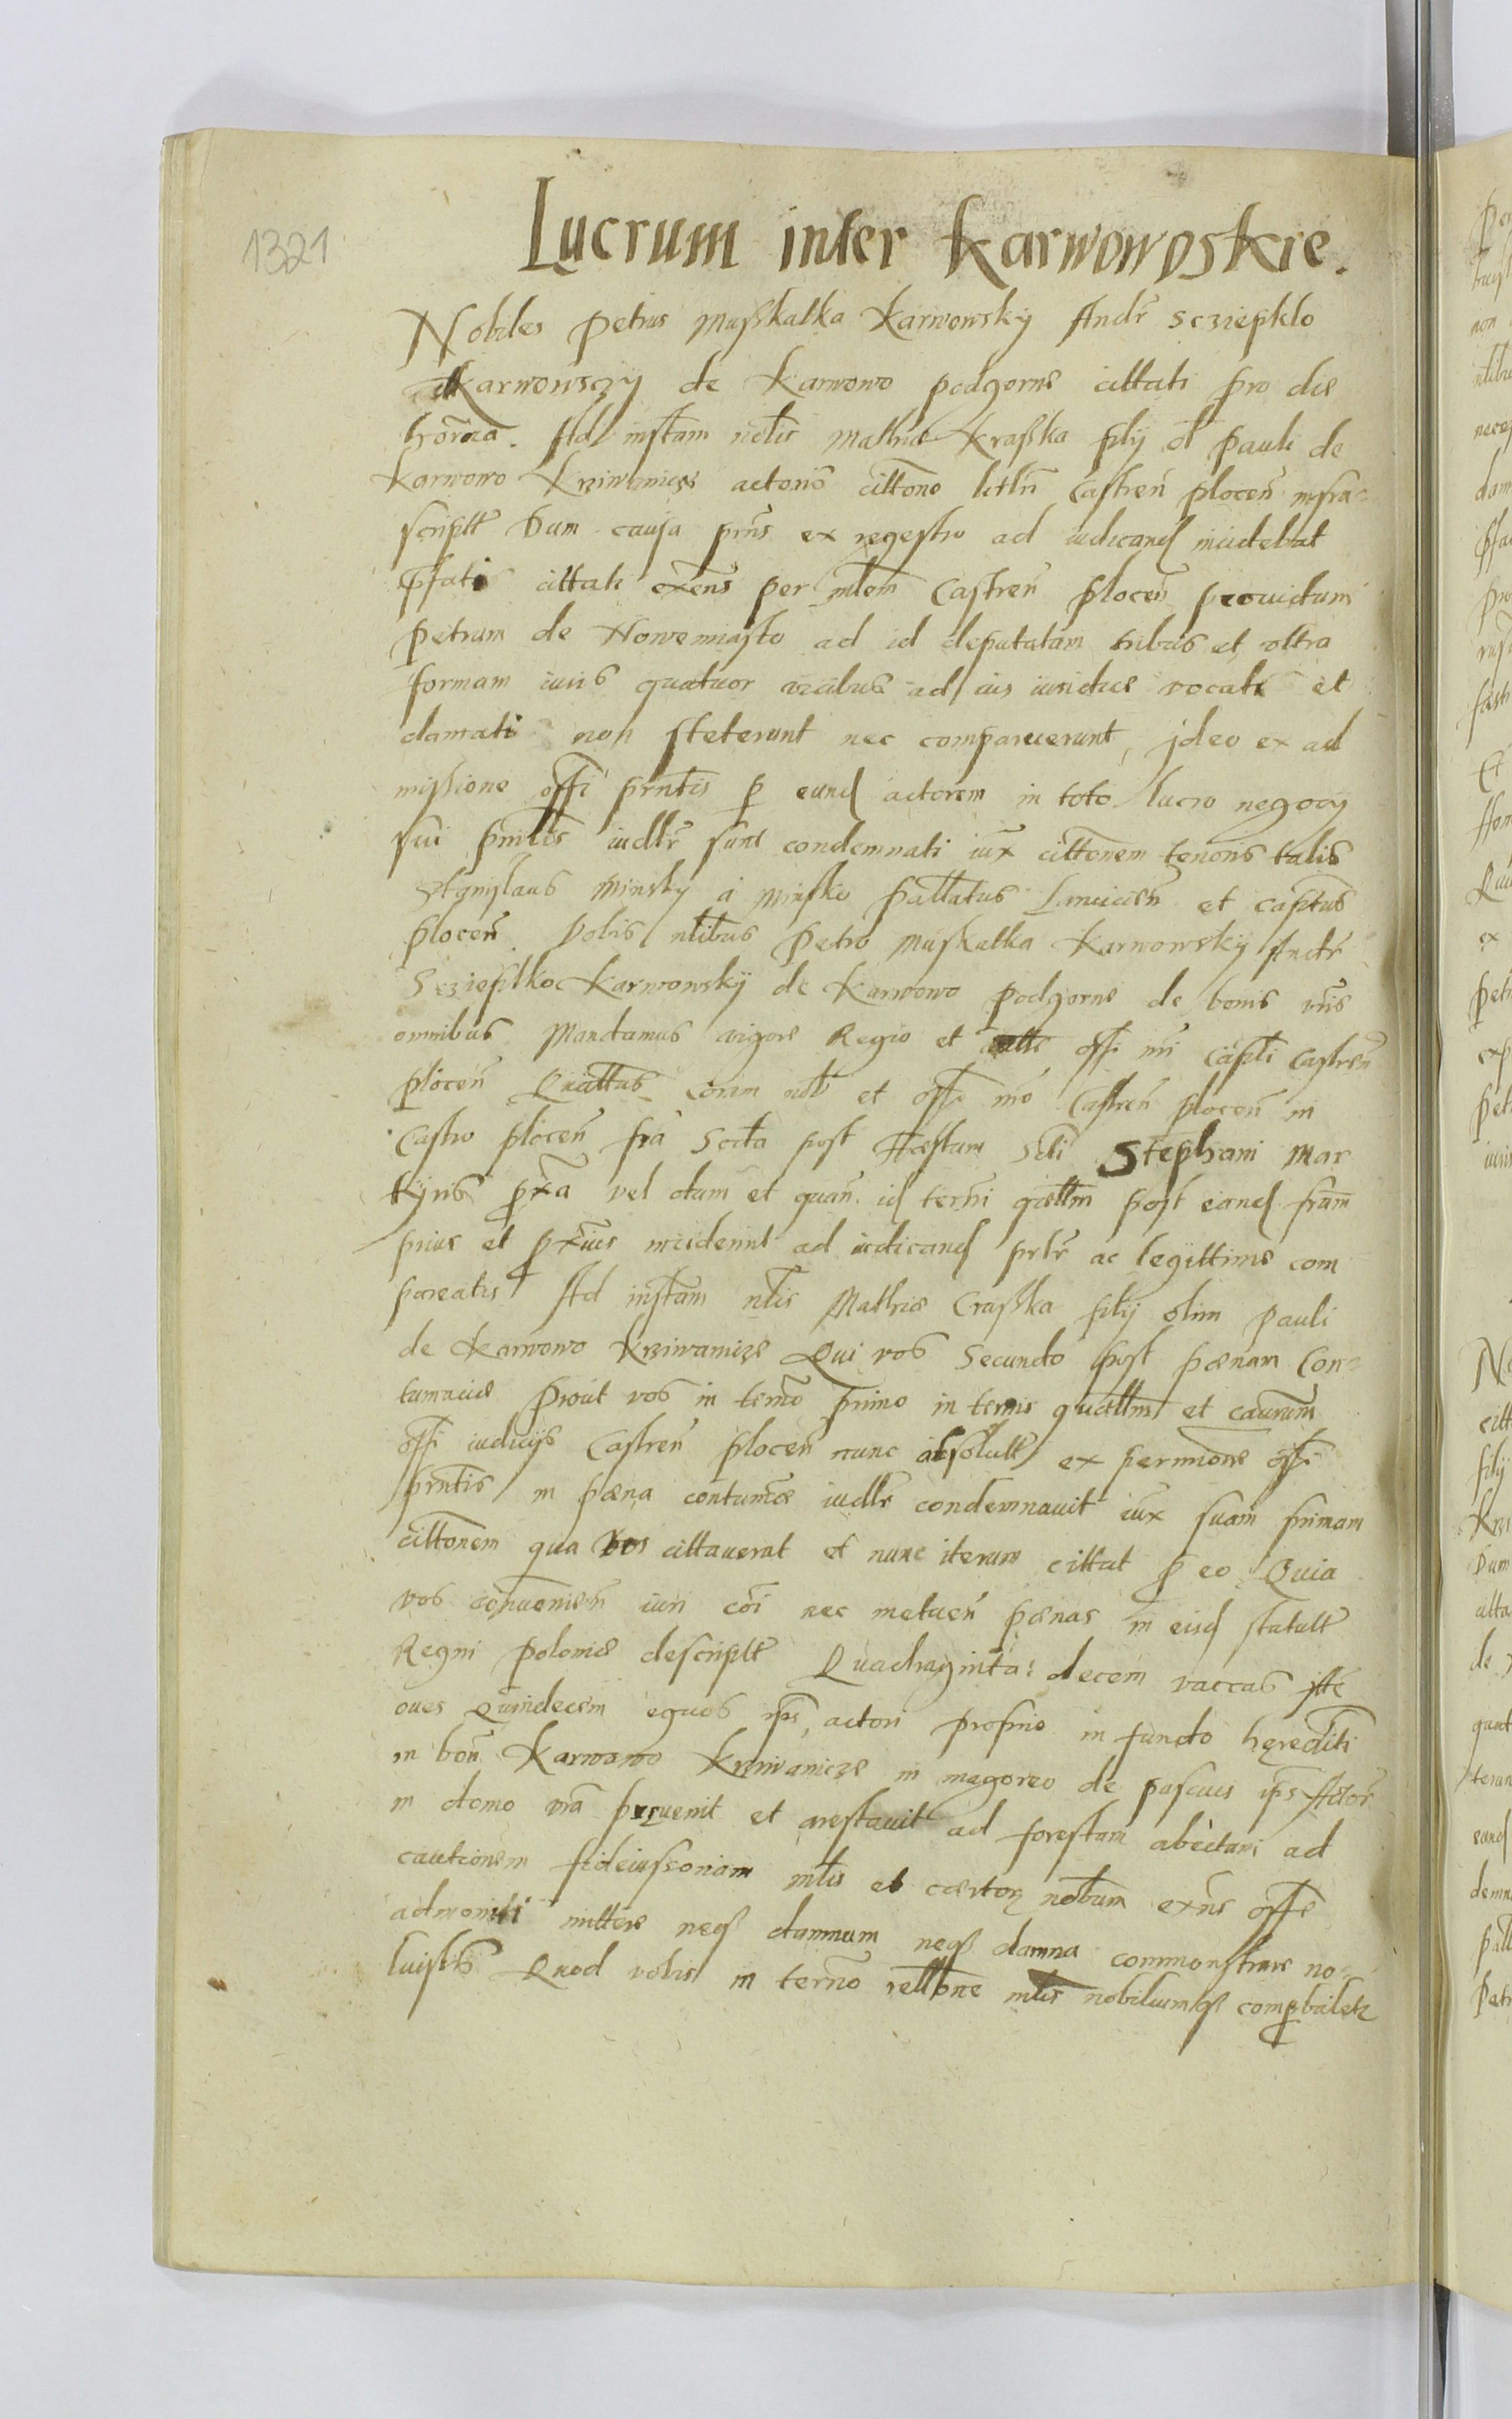 1321
Lucrum inter Karwowoskie.
Nobiles Petrus Muszkalka Karwowskÿ Andr Scziepklo
Karwowsczÿ de Karwowo podgorne cittati pro die
hõrna. Ad instam nobis Mathia Kraszka filÿ ol Pauli de
Karwowo Krziwanicze actoris cittõne littri Castreñ plocen̄ infra-
scriptt Dum causa prñs ex regestro ad iudicand incidebat
Pfati cittati exeñs per mlem Castreñ plocen̄ providum
Petrum de Nowemiasto ad id deputatum tribus et ultra
formam iuris quatuor vicibus ad ius iuridice vocati et
clamati non steterunt nec comparuerunt, jdeo ex ad
missione offi prntis p eund actorem in toto lucro negocÿ
sui prntis iudlr sunt condemnati iux cittonem tenoris talis
Stanislaus Minsky a Minsko pallatus Lancicieñ et Captus
plocen̄. Vobis nlibus Petro Muskalka Karwowskÿ Andr
Scziepklo Karwowskÿ de Karwowo podgorne de bonis vris
omnibus Mandamus vigore Regio et offi mi Capti Castreñ
plocen̄ Quattus coram nob et offi mo Castreñ plocen̄ in
Castro plocen̄ fra Scda post Faestum Scti Stephani Mar
tÿris pxa vel dum et quan id terni quellm post eand fram
prius et pxius inciderint ad iudicand prlr ac legittime com
pareatis Ad instam nlis Mathiae Craszka filÿ olim Pauli
de Karwowo Krziwanicze Qui vos Secundo post paenam Con-
tumaciae prout vos in terno primo in ternis quellm et causarum
offi iudicÿs Castreñ plocen̄ nunc absolutt ex permione offi
prntis in paena contumae iudlr condemnavit iux suam primam
cittonem qua vos cittaverat et nunc iterum cittat p eo Quia
vos convenieñ iuri coi nec metueñ paenas in eisd statutt
Regni poloniae descriptt Quadraginta: decem vaccas itte
oves Quindecem equos ips actori proprio in fundo hęrediti
in boñ Karwowo Krziwanicze in magoreo de pascuis ips Actor
in domo vra pręvenit et arestavit ad forestam abectari ad
cautionem fideiussoriam mlis et certor nobum exñs offe
admoniti mittere neq damnum neq damna commonstrare no-
luistis Quod vobis in terno rellone mlis nobiliumq comprobaletr